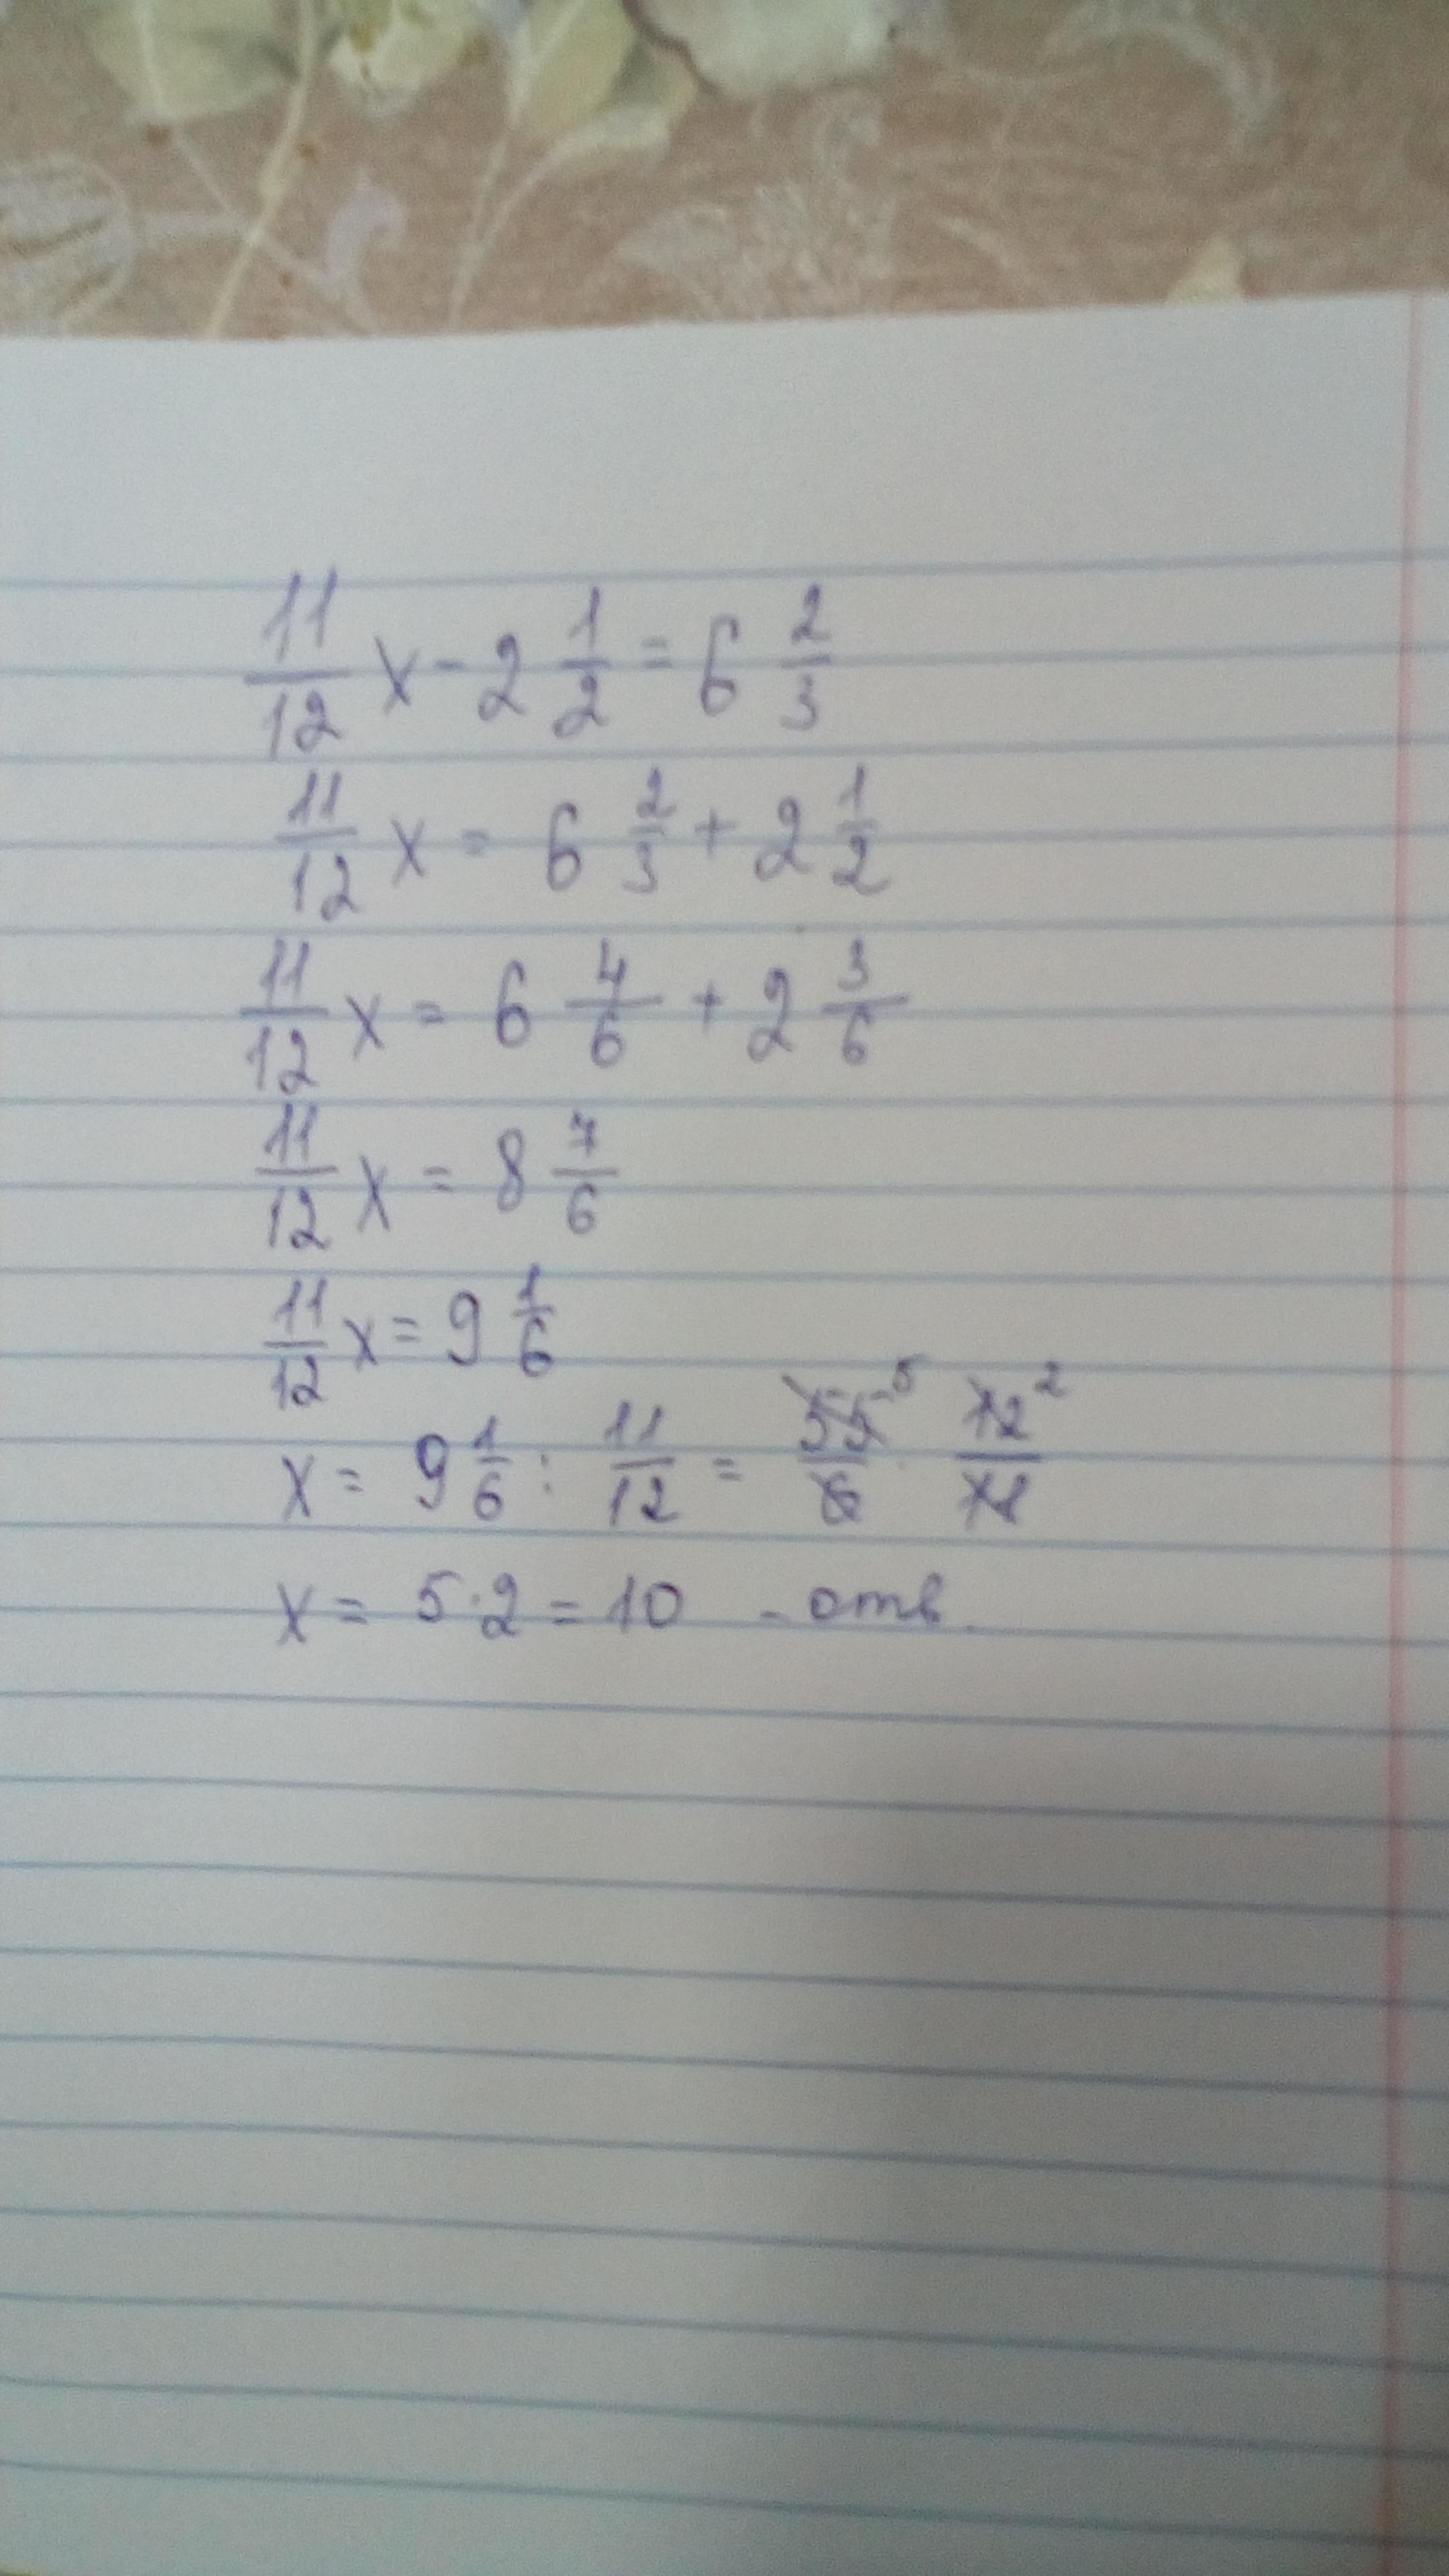 11/12 x - 2 1/2 = 6 2/3
11/12 x = 6 2/3 + 2 1/2
11/12 x = 6 4/6 + 2 3/6
11/12 x = 8 7/6
11/12 x = 9 1/6
x = 9 1/6 : 11/12 = 55 5/6 · 12 2/11
x = 5 · 2 = 10 - отв.